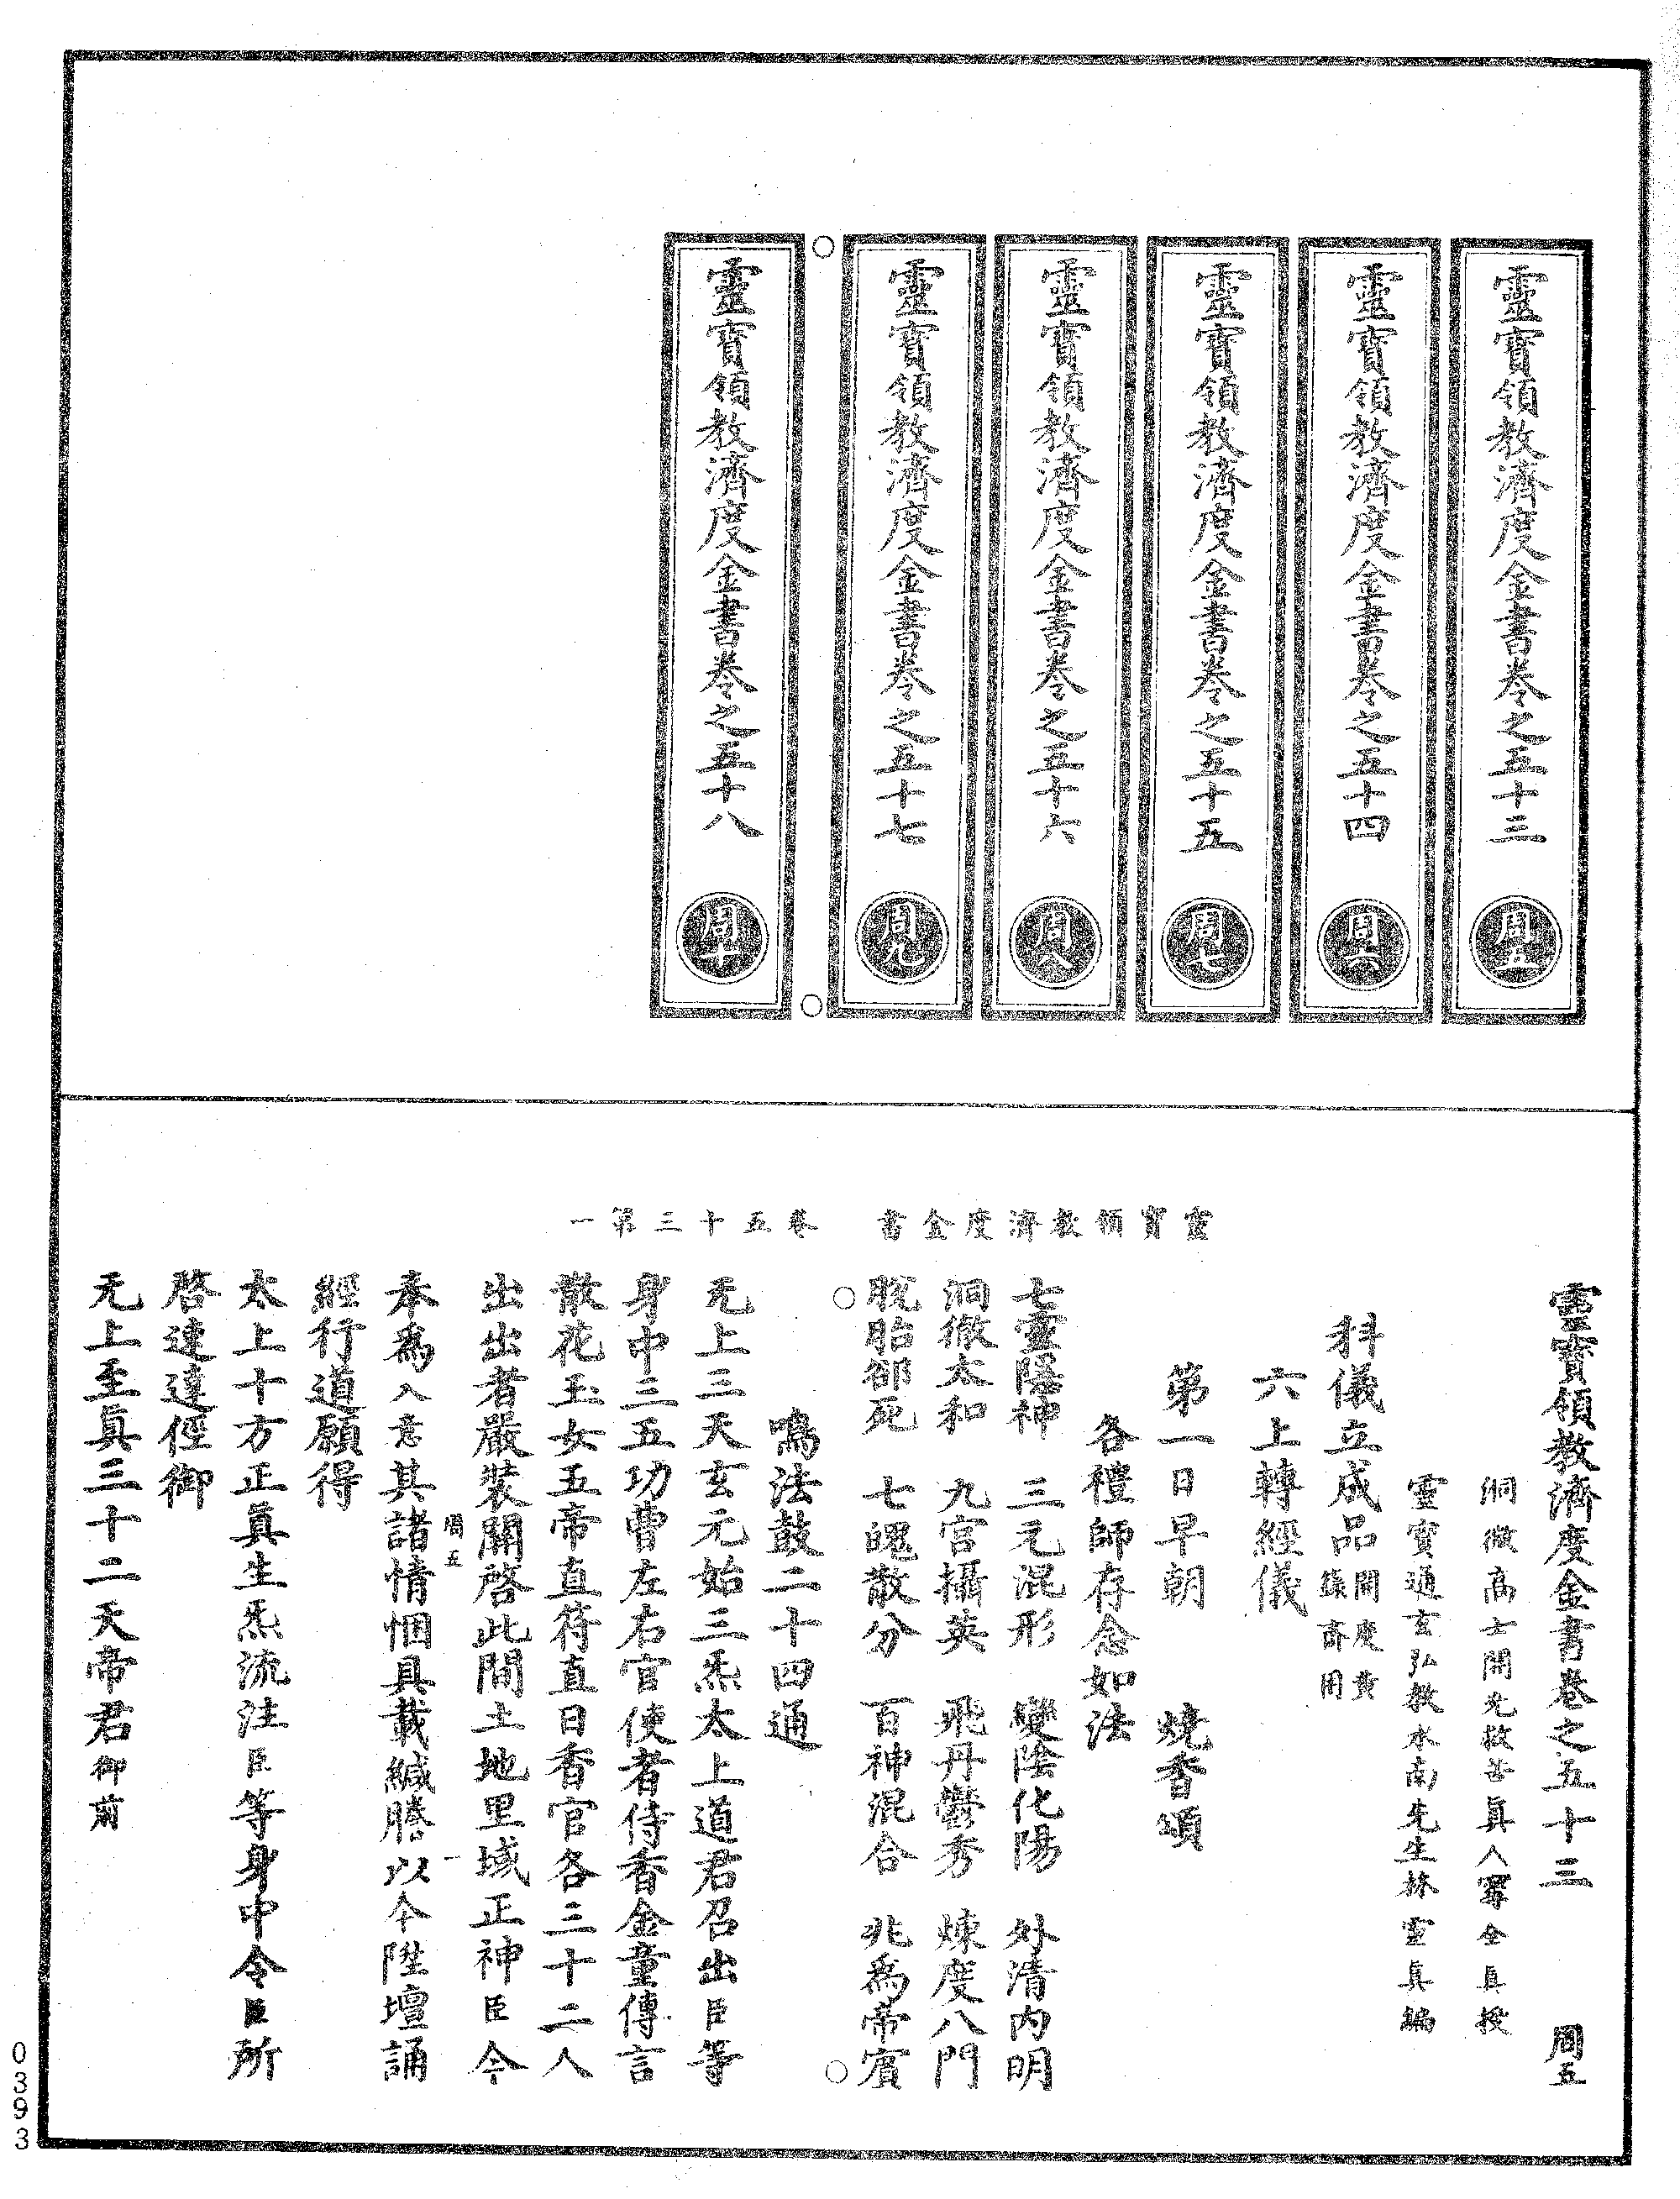 靈寶領教濟度金書卷之五十三
周五
靈寶領教濟度金書卷之五十四
周六
靈寶領教濟度金書卷之五十五
周七
靈寶領教濟度金書卷之五十六
周八
靈寶領教濟度金書卷之五十七
周九
靈寶領教濟度金書卷之五十八
周十
靈寶領教濟度金書 卷五十三第一
靈寶領教濟度金書卷之五十三 周五
洞微高士開光救苦眞人寗全眞授
靈寶通玄弘教水南先生林靈眞編
科儀立成品開度黄籙齋用
六上轉經儀
第一日早朝 燒香頌
各禮師存念如法
七靈隱神 三元混形 變陰化陽 外清內明
洞徹太和 九宮攝英 飛丹鬱秀 煉度八門
脫胎卻死 七魄散分 百神混合 兆爲帝賓
鳴法鼓二十四通
无上三天玄元始三炁太上道君召出臣等
身中三五功曹左右官使者侍香金童傳言
散花玉女五帝直符直日香官各三十二人
出出者嚴裝關啓此間土地里域正神臣今
奉爲入意其諸情悃具載緘謄以今陞壇誦
周五 一
經行道願得
太上十方正眞生炁流注臣等身中令臣所
啓速達徑御
无上至眞三十二天帝君御前
0393